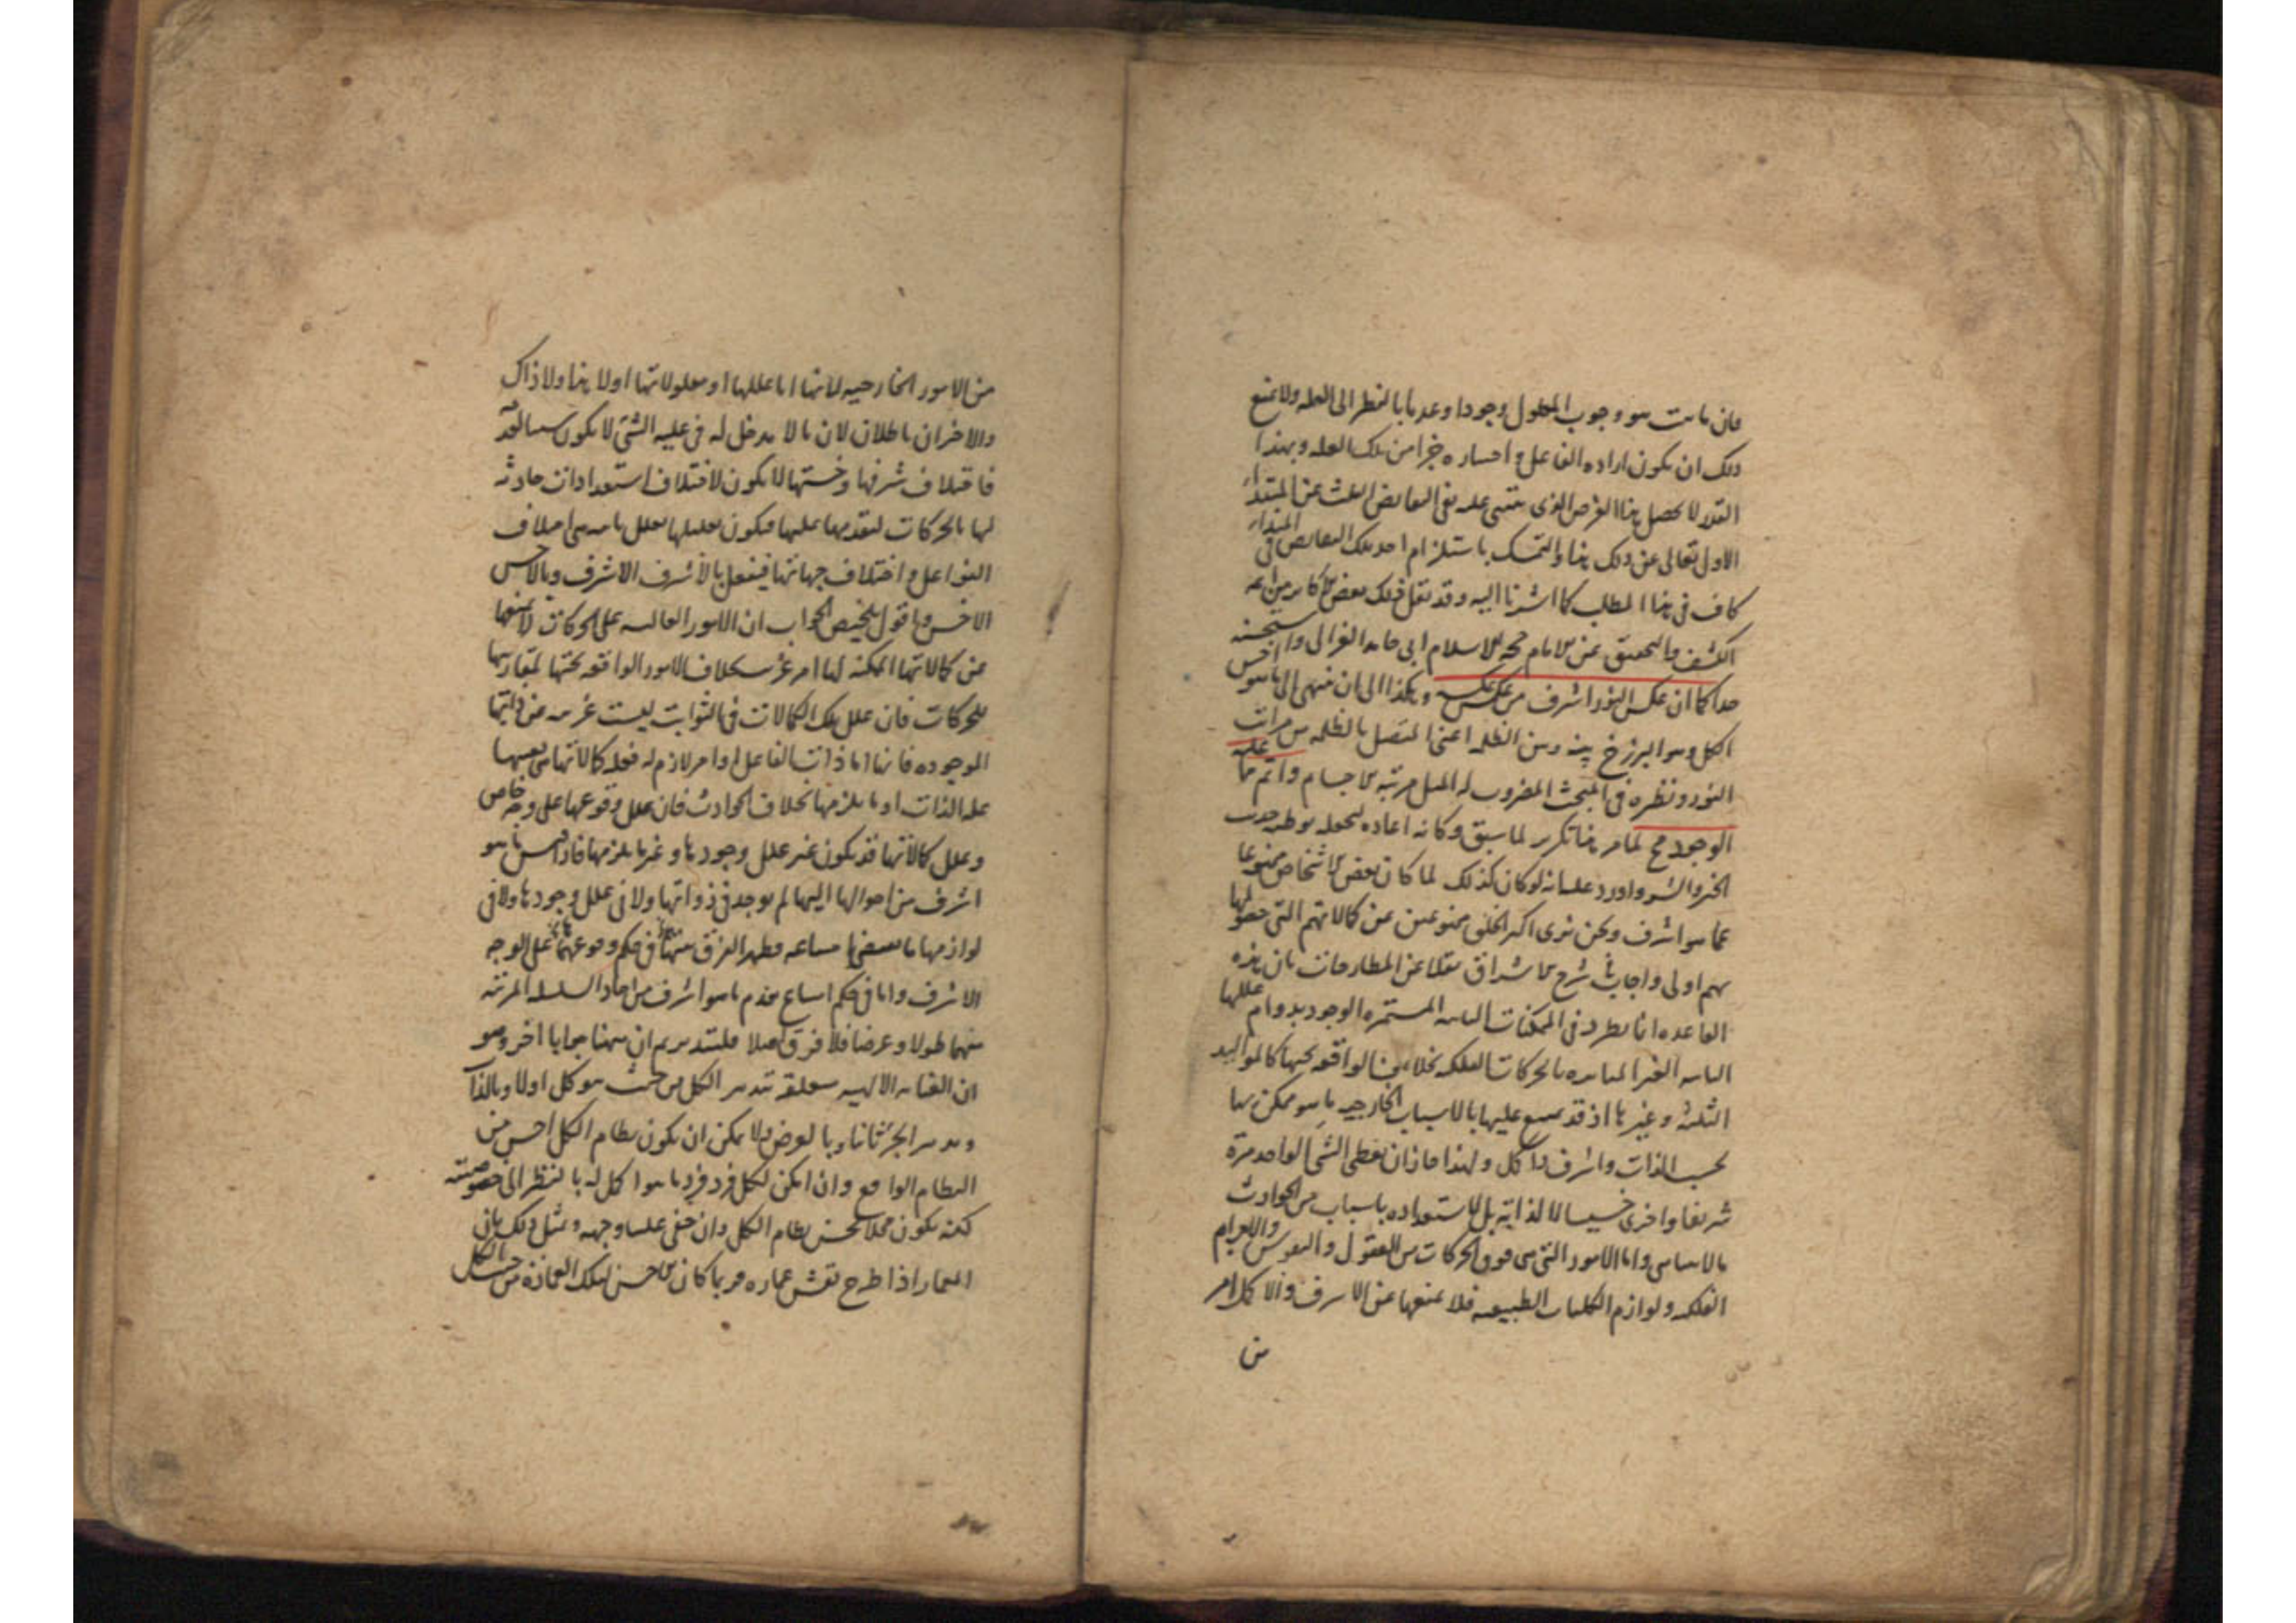 فان ما ىت هو وجوب المعلول وجودا وعدما بالنظر الى العله ولا تمنع
ذلك ان يكون اراده الفاعل و احساره جزا من تلك العله و بهذا
القدر لا يحصل هنا الغرض الذى يتنى عليه نفى النقايض عن المبتدا
الاول تعالى عن ذلك هنا والتمسك باستلزام احد تلك النقايض فى المبتدا
كاف فى هذا المطلب كما اشرنا اليه وقد نقل ذلك بعض الاكابر من ايمه
الكشف والتحقيق عن الامام حجه الاسلام ابى حامد الغزالى واستحسنه
جدا كما ان عكس النور اشرف من عكس عكسه و هكذا الى ان ينتهى الى ما هو اخس
الكل وهو البرزخ بينه وبين الظلمه اعنى المتصل بالظلمه من مراتب
النور ونظيره فى المبحث المضروب له المثل مرتبه الاجسام واتم ما عليه
الوجود مح لما مر هنا تكرير لما سبق وكانه اعاده ليجعله توطئه
الخير والشر واورد عليه انه لو كان كذلك لما كان بعض الاشخاص ممنوعا
عما هو اشرف ونحن نرى اكثر الخلق ممنوعين عن كمالاتهم التى حصولها
بهم اولى واجاب فى شرح الاشراق نقلا عن المطارحات بان هذه
القاعده انما يطرد فى الممكنات الثابته المستمره الوجود بدوام عللها
الثابته الغير المتاثره بالحركات الفلكيه بخلاف الواقعه تحتها كالمواليد
الثلثه و غيرها اذ قد يمتنع عليها بالاسباب الخارجيه ما هو ممكن لها
بحسب الذات واشرف و اكمل ولهذا جاز ان يعطى الشى الواحد مرة
شريفا واخرى خسيسا لا لذاته بل لاستعداده باسباب من الحوادث
واما الامور التى هى فوق الحركات من العقول والنفوس والاجرام
الفلكيه ولوازم الكليات الطبيعيه فلا يمنعها عن الاشرف والاكمل امر
من
من الامور الخارجيه لانها اما عللها او معلولاتها او لا هذا ولا ذاك
والاخران باطلان لان ما لا مدخل له فى عليه الشى لا يكون سببا لفقده
فاختلاف شرفها وخستها لا يكون لاختلاف استعدادات حادثه
لها بالحركات لتقدمها عليها فيكون تعليلها يعلل باختلاف
الفواعل و اختلاف جهاتها فيفعل بالاشرف الاشرف وبالاخس
الاخس و اقول تلخيص الجواب ان الامور العاليه على الحركات لا يمنعها
عن كمالاتها الممكنه لها امر غريب بخلاف الامور الواقعه تحتها لمقارنتها
للحركات فان علل تلك الكمالات فى الثوابت ليست غريبه عن ذاتها
الموجوده فانها اما ذات الفاعل او امر لازم له فعله كمالاتها هى بعينها
عله الذات او ما يلزمها بخلاف الحوادث فان علل وقوعها على وجه خاص
وعلل كمالاتها قد يكون غير علل وجودها و غير ما يلزمها فاذا قيس ما هو
اشرف من احوالها اليها لم يوجد فى ذواتها ولا فى علل وجودها ولا فى
لوازمها ما يقتضى امتناعه فظهر الفرق بينهما فى حكم وقوعهما على الوجه
الاشرف واما فى حكم امتناع عدم ما هو اشرف من احاد السلسله المرتبه
منهما طولا و عرضا فلا فرق اصلا فليتدبر ثم ان ههنا جوابا اخر وهو
ان العنايه الالهيه متعلقه بتدبير الكل من حيث هو كل اولا وبالذات
وبتدبير الجزء ثانيا وبالعرض ولا يمكن ان يكون نظام الكل احسن من
النظام الواقع وان امكن لكل فرد فرد ما هو اكمل له بالنظر الى خصوصيته
لكنه يكون مخلا بحسن نظام الكل وان خفى علينا وجهه و مثل ذلك بان
المعمار اذا طرح نقش عماره فربما كان الاحسن لتلك العماره من حيث الكل